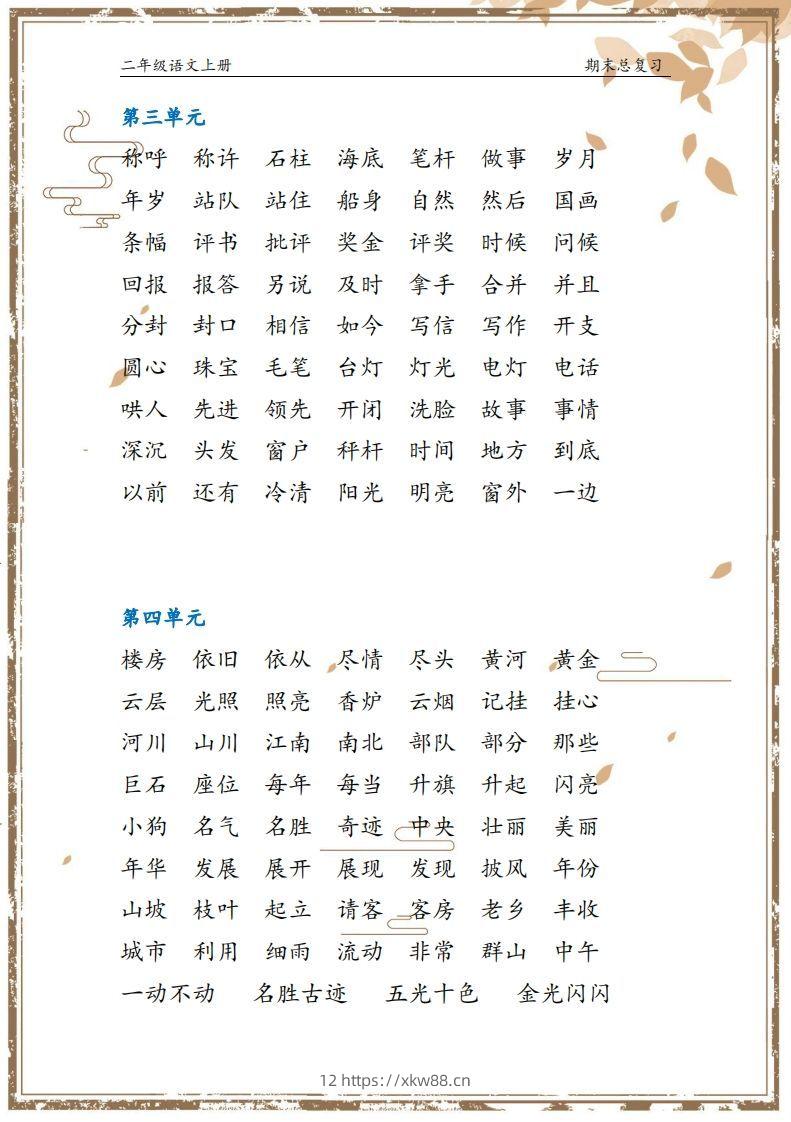 二年级语文上册 期末总复习
第三单元
称呼 称许 石柱 海底 笔杆 做事 岁月
年岁 站队 站住 船身 自然 然后 国画
条幅 评书 批评 奖金 评奖 时候 问候
回报 报答 另说 及时 拿手 合并 并且
分封 封口 相信 如今 写信 写作 开支
圆心 珠宝 毛笔 台灯 灯光 电灯 电话
哄人 先进 领先 开闭 洗脸 故事 事情
深沉 头发 窗户 秤杆 时间 地方 到底
以前 还有 冷清 阳光 明亮 窗外 一边
第四单元
楼房 依旧 依从 尽情 尽头 黄河 黄金
云层 光照 照亮 香炉 云烟 记挂 挂心
河川 山川 江南 南北 部队 部分 那些
巨石 座位 每年 每当 升旗 升起 闪亮
小狗 名气 名胜 奇迹 中央 壮丽 美丽
年华 发展 展开 展现 发现 披风 年份
山坡 枝叶 起立 请客 客房 老乡 丰收
城市 利用 细雨 流动 非常 群山 中午
一动不动 名胜古迹 五光十色 金光闪闪
12 https://xkw88.cn